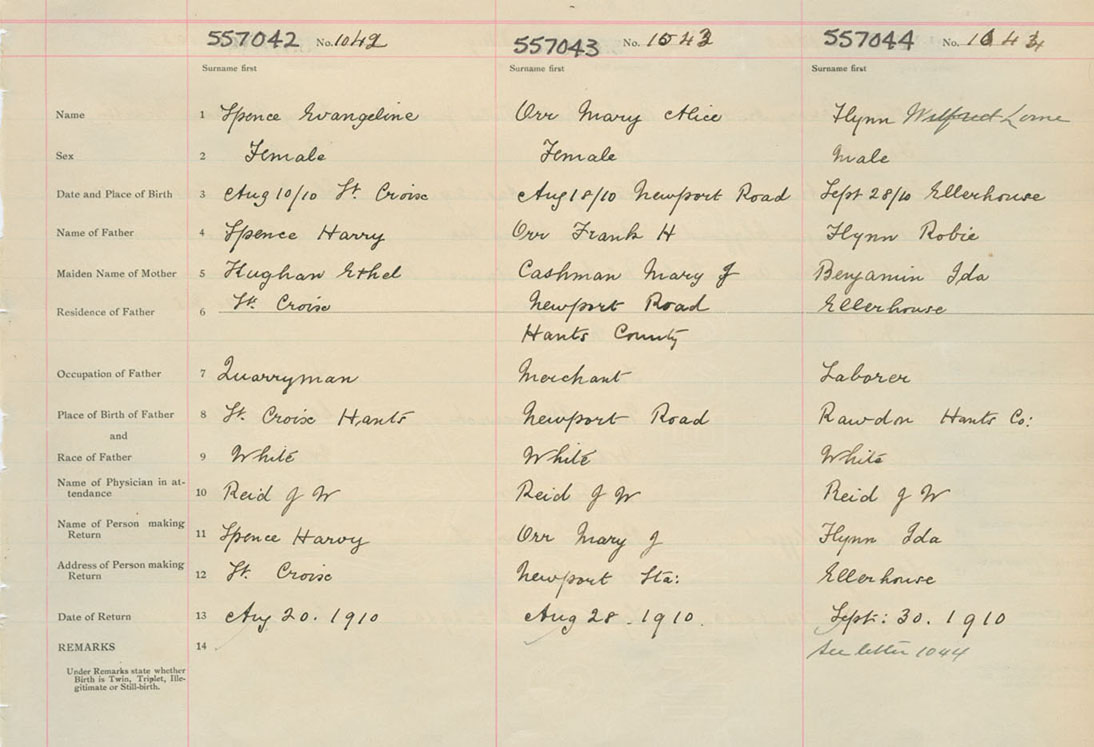 557042 No. 1042 557043 No. 1043 557044 No. 1044
Surname first Surname first Surname first
Name 1 Spence Evangeline Orr Mary Alice Flynn Wilfred Lorne
Sex 2 Female Female Male
Date and Place of Birth 3 Aug 10/10 St. Croix Aug 18/10 Newport Road Sept 28/10 Ellerhouse
Name of Father 4 Spence Harry Orr Frank H Flynn Robie
Maiden Name of Mother 5 Hughan Ethel Cashman Mary J Benjamin Ida
Residence of Father 6 St. Croix Newport Road Ellerhouse
Hants County
Occupation of Father 7 Quarryman Merchant Laborer
Place of Birth of Father 8 St. Croix Hants Newport Road Rawdon Hants Co:
and
Race of Father 9 White White White
Name of Physician in at-
tendance 10 Reid J W Reid J W Reid J W
Name of Person making
Return 11 Spence Harvy Orr Mary J Flynn Ida
Address of Person making
Return 12 St. Croix Newport Sta: Ellerhouse
Date of Return 13 Aug 20. 1910 Aug 28. 1910. Sept: 30. 1910
REMARKS 14 See letter 1044
Under Remarks state whether
Birth is Twin, Triplet, Ille-
gitimate or Still-birth.